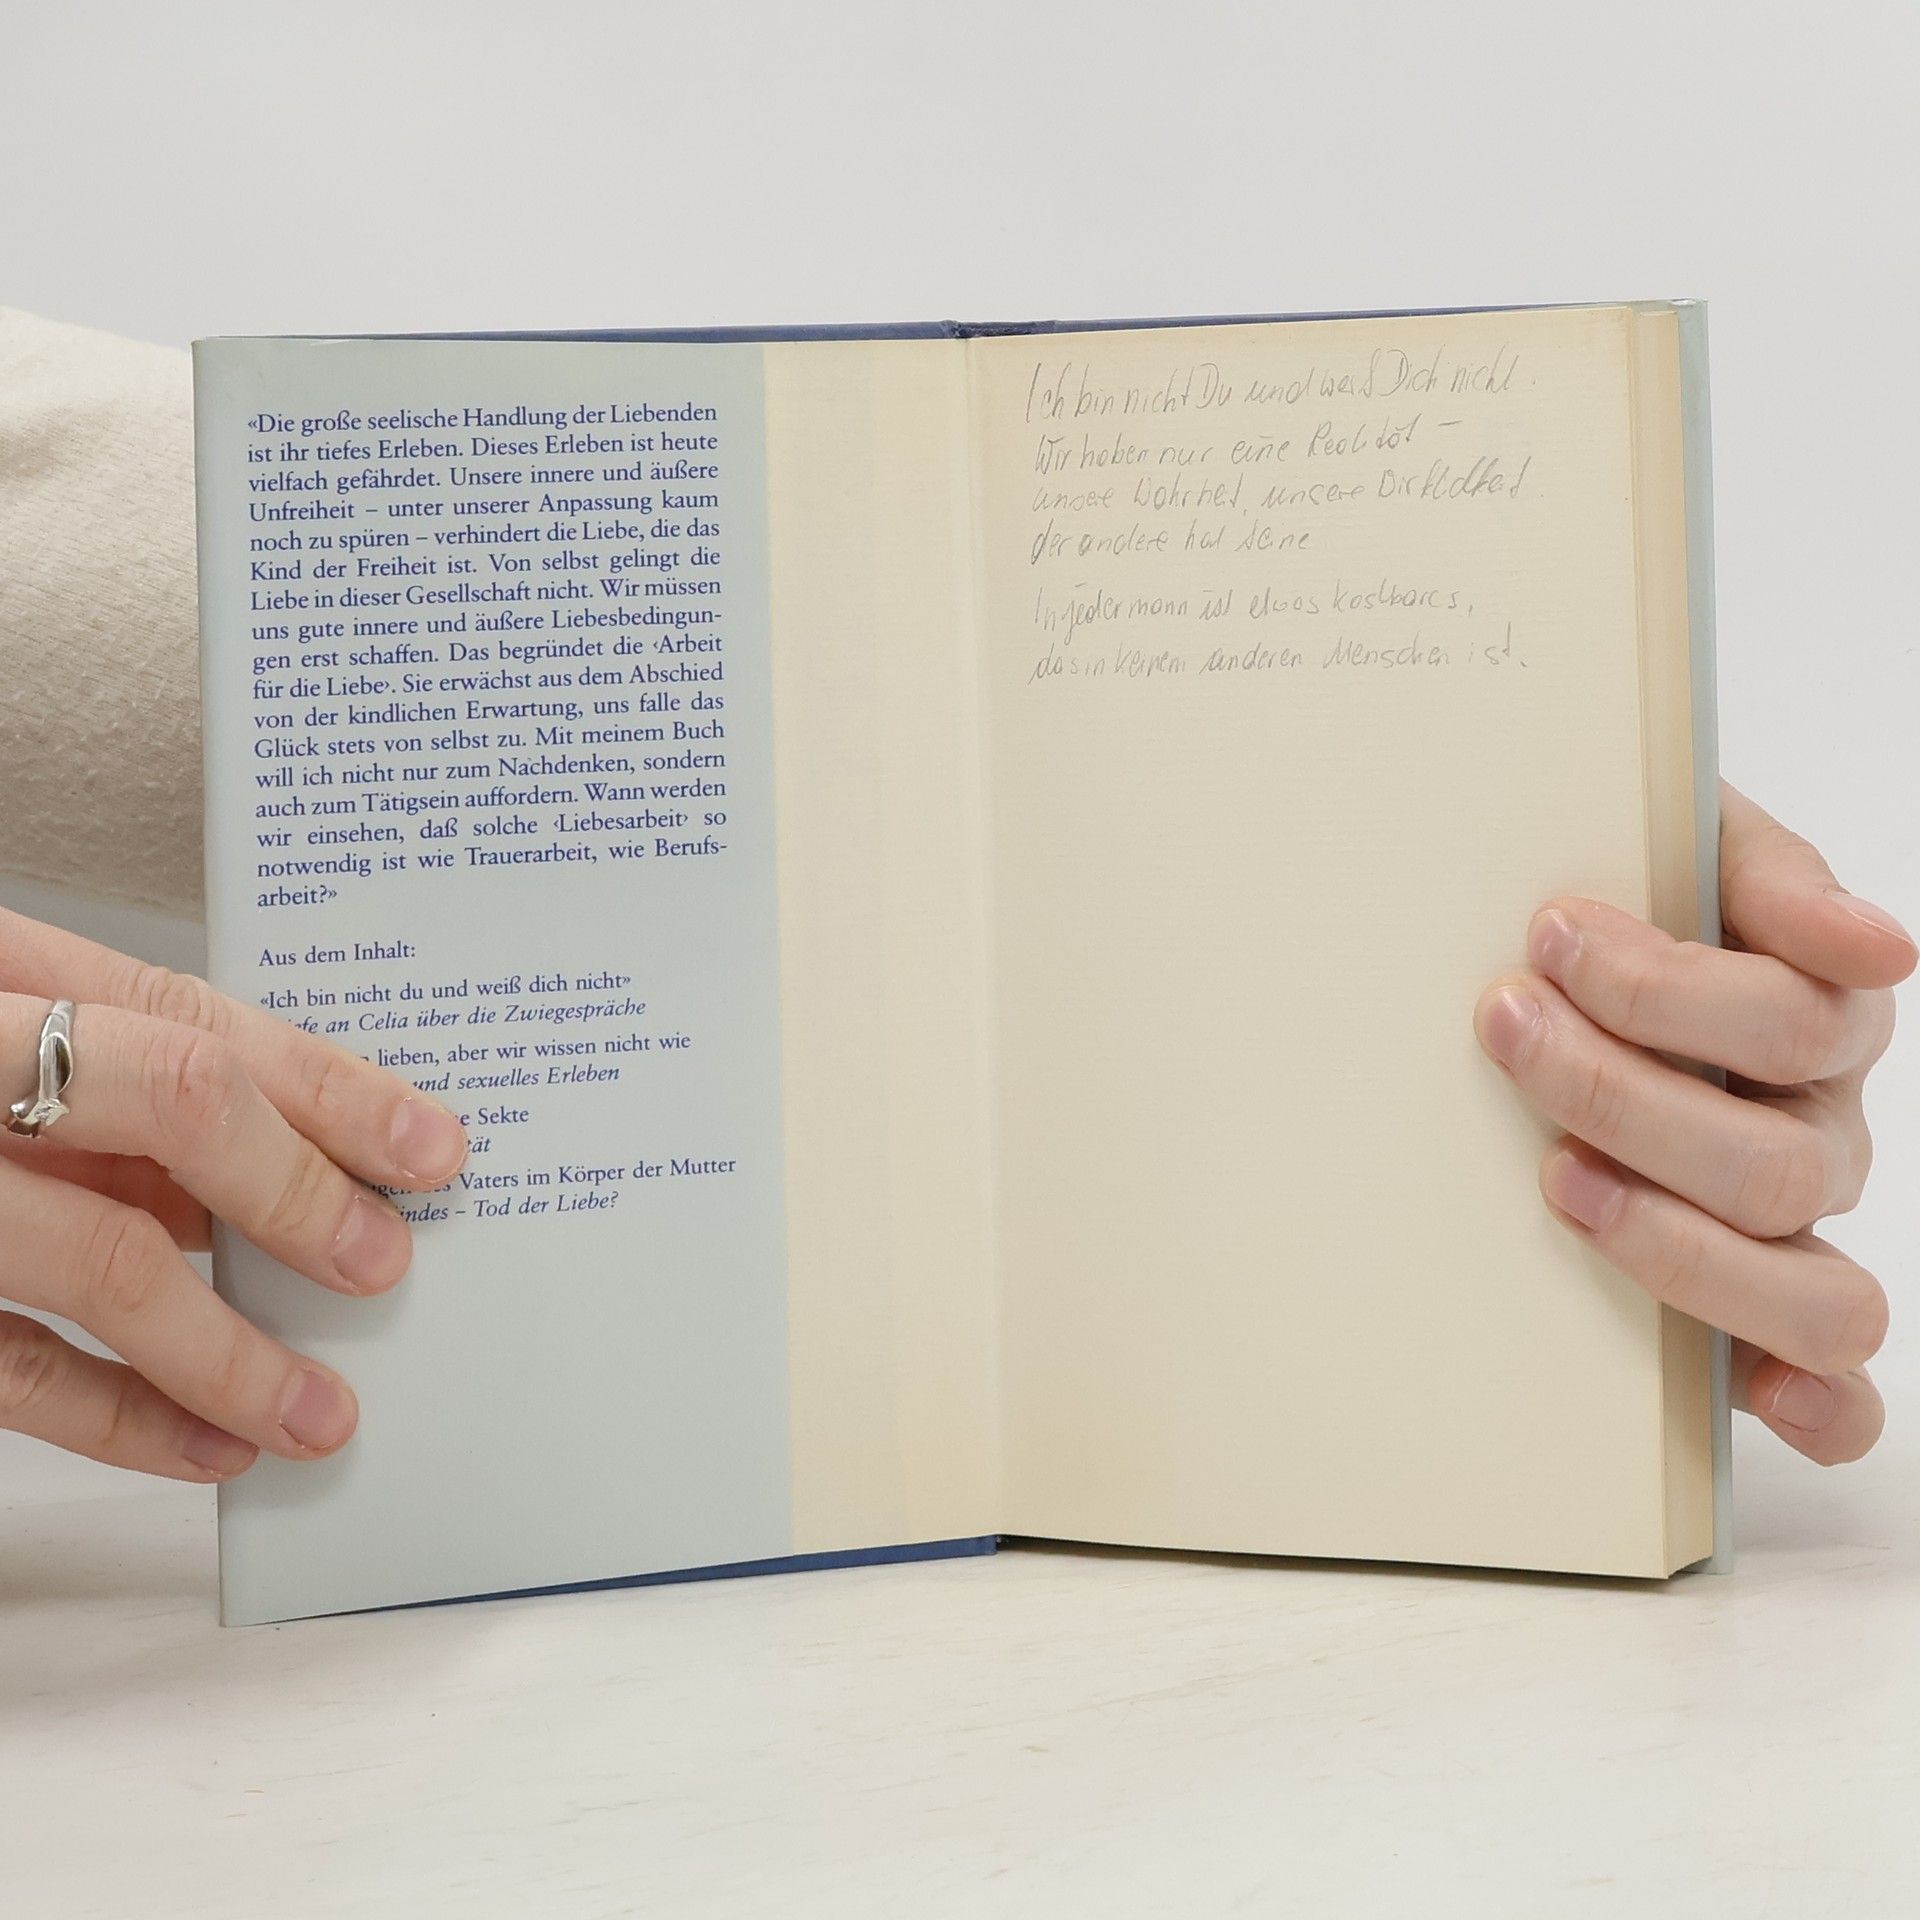 «Die große seelische Handlung der Liebenden
ist ihr tiefes Erleben. Dieses Erleben ist heute
vielfach gefährdet. Unsere innere und äußere
Unfreiheit – unter unserer Anpassung kaum
noch zu spüren – verhindert die Liebe, die das
Kind der Freiheit ist. Von selbst gelingt die
Liebe in dieser Gesellschaft nicht. Wir müssen
uns gute innere und äußere Liebesbedingun-
gen erst schaffen. Das begründet die ‹Arbeit
für die Liebe›. Sie erwächst aus dem Abschied
von der kindlichen Erwartung, uns falle das
Glück stets von selbst zu. Mit meinem Buch
will ich nicht nur zum Nachdenken, sondern
auch zum Tätigsein auffordern. Wann werden
wir einsehen, daß solche ‹Liebesarbeit› so
notwendig ist wie Trauerarbeit, wie Berufs-
arbeit?»
Aus dem Inhalt:
«Ich bin nicht du und weiß dich nicht»
an Celia über die Zwiegespräche
lieben, aber wir wissen nicht wie
und sexuelles Erleben
Sekte
Vaters im Körper der Mutter
– Tod der Liebe?
Ich bin nicht Du und weiß Dich nicht.
Wir haben nur eine Realität –
unsere Wahrheit, unsere Wirklichkeit.
der andere hat seine
In jedermann ist etwas kostbares,
das in keinem anderen Menschen ist.